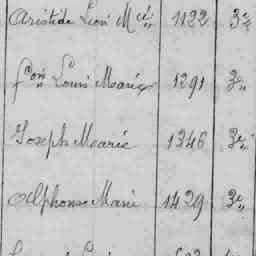 Aristide Léon Mcel 1122 3e
fçois Louis Marie 1291 3e
Joseph Marie 1346 3e
Alphonse Marie 1429 3e